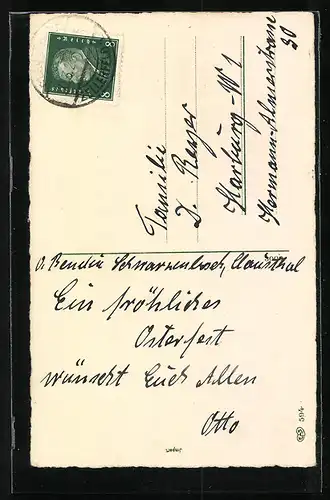 8 8
Familie
D. Reyer
Harburg-W 1
Hermann-Almersstrasse
30
Schwarzenbock, Clausthal
Ein fröhliches
Osterfest
wünscht Euch Allen
Otto
594